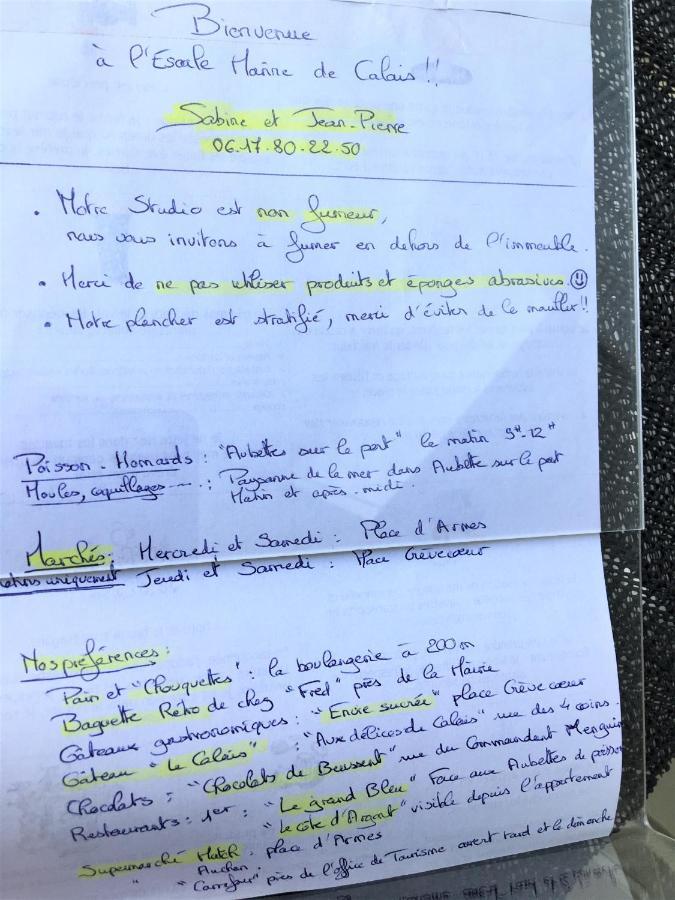 Bienvenue
à l'Escale Marine de Calais !!
Sabine et Jean-Pierre
06.17.80-22-50
• Notre Studio est non fumeur,
nous vous invitons à fumer en dehors de l'immeuble.
• Merci de ne pas utiliser produits et éponges abrasives. ☺
• Notre plancher est stratifié, merci d'éviter de le mouiller !!
Poisson - Homards : "Aubettes sur le port" le matin 9H-12H
Moules, coquillages ---- : Paysanne de la mer dans Aubette sur le port
Matin et après-midi.
Marchés : Mercredi et Samedi : Place d'Armes
uniquement Jeudi et Samedi : Place Crèvecoeur
Nos préférences :
Pain et "Chouquettes" : la boulangerie à 200m
Baguette Rétro de chez "Fred" près de la Mairie
Gâteaux gastronomiques : "Envie sucrée" place Crèvecoeur
Gâteau "Le Calais" : "Aux délices de Calais" rue des 4 coins.
Chocolats : "Chocolats de Beussent" rue du Commandant Mengin
Restaurants : 1er : "Le grand Bleu" Face aux Aubettes de
"Le côte d'Argent" visible depuis l'appartement
Supermarché Match : place d'Armes
" Auchan
" "Carrefour" près de l'office de Tourisme ouvert tard et le dimanche